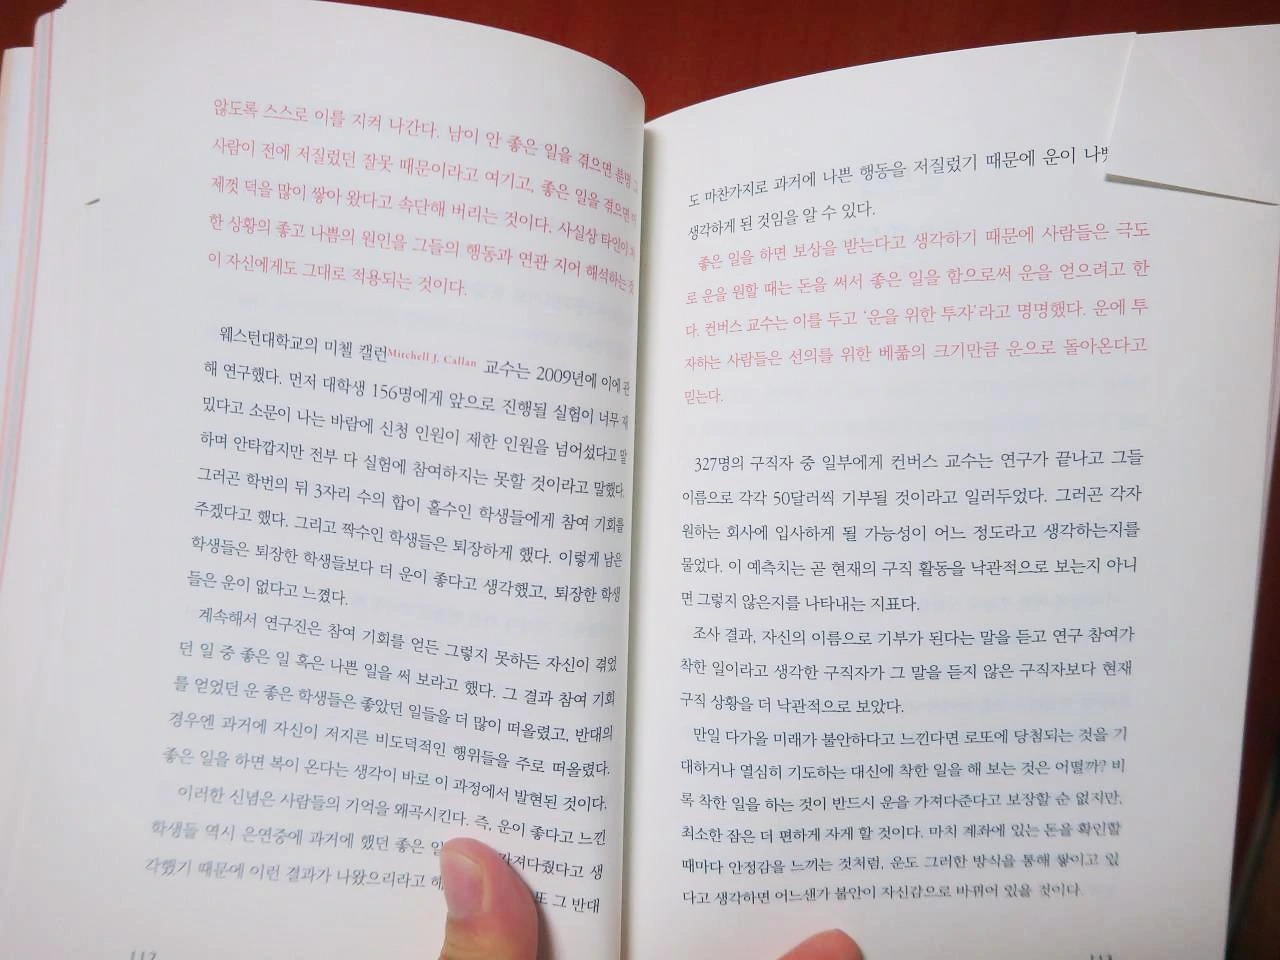 않도록 스스로 이를 지켜 나간다. 남이 안 좋은 일을 겪으면 분명 그
사람이 전에 저질렀던 잘못 때문이라고 여기고, 좋은 일을 겪으면
제껏 덕을 많이 쌓아 왔다고 속단해 버리는 것이다. 사실상 타인이
한 상황의 좋고 나쁨의 원인을 그들의 행동과 연관 지어 해석하는 것
이 자신에게도 그대로 적용되는 것이다.
웨스턴대학교의 미첼 캘런Mitchell J. Callan 교수는 2009년에 이에 관
해 연구했다. 먼저 대학생 156명에게 앞으로 진행될 실험이 너무 재
밌다고 소문이 나는 바람에 신청 인원이 제한 인원을 넘어섰다고 말
하며 안타깝지만 전부 다 실험에 참여하지는 못할 것이라고 말했다.
그러곤 학번의 뒤 3자리 수의 합이 홀수인 학생들에게 참여 기회를
주겠다고 했다. 그리고 짝수인 학생들은 퇴장하게 했다. 이렇게 남은
학생들은 퇴장한 학생들보다 더 운이 좋다고 생각했고, 퇴장한 학생
들은 운이 없다고 느꼈다.
계속해서 연구진은 참여 기회를 얻든 그렇지 못하든 자신이 겪었
던 일 중 좋은 일 혹은 나쁜 일을 써 보라고 했다. 그 결과 참여 기회
를 얻었던 운 좋은 학생들은 좋았던 일들을 더 많이 떠올렸고, 반대의
경우엔 과거에 자신이 저지른 비도덕적인 행위들을 주로 떠올렸다.
좋은 일을 하면 복이 온다는 생각이 바로 이 과정에서 발현된 것이다.
이러한 신념은 사람들의 기억을 왜곡시킨다. 즉, 운이 좋다고 느낀
학생들 역시 은연중에 과거에 했던 좋은 가져다줬다고 생
각했기 때문에 이런 결과가 나왔으리라고 또 그 반대
117
도 마찬가지로 과거에 나쁜 행동을 저질렀기 때문에 운이
생각하게 된 것임을 알 수 있다.
좋은 일을 하면 보상을 받는다고 생각하기 때문에 사람들은 극도
로 운을 원할 때는 돈을 써서 좋은 일을 함으로써 운을 얻으려고 한
다. 컨버스 교수는 이를 두고 '운을 위한 투자'라고 명명했다. 운에 투
자하는 사람들은 선의를 위한 베풂의 크기만큼 운으로 돌아온다고
믿는다.
327명의 구직자 중 일부에게 컨버스 교수는 연구가 끝나고 그들
이름으로 각각 50달러씩 기부될 것이라고 일러두었다. 그러곤 각자
원하는 회사에 입사하게 될 가능성이 어느 정도라고 생각하는지를
물었다. 이 예측치는 곧 현재의 구직 활동을 낙관적으로 보는지 아니
면 그렇지 않은지를 나타내는 지표다.
조사 결과, 자신의 이름으로 기부가 된다는 말을 듣고 연구 참여가
착한 일이라고 생각한 구직자가 그 말을 듣지 않은 구직자보다 현재
구직 상황을 더 낙관적으로 보았다.
만일 다가올 미래가 불안하다고 느낀다면 로또에 당첨되는 것을 기
대하거나 열심히 기도하는 대신에 착한 일을 해 보는 것은 어떨까? 비
록 착한 일을 하는 것이 반드시 운을 가져다준다고 보장할 순 없지만,
최소한 잠은 더 편하게 자게 할 것이다. 마치 계좌에 있는 돈을 확인할
때마다 안정감을 느끼는 것처럼, 운도 그러한 방식을 통해 쌓이고 있
다고 생각하면 어느샌가 불안이 자신감으로 바뀌어 있을 것이다.